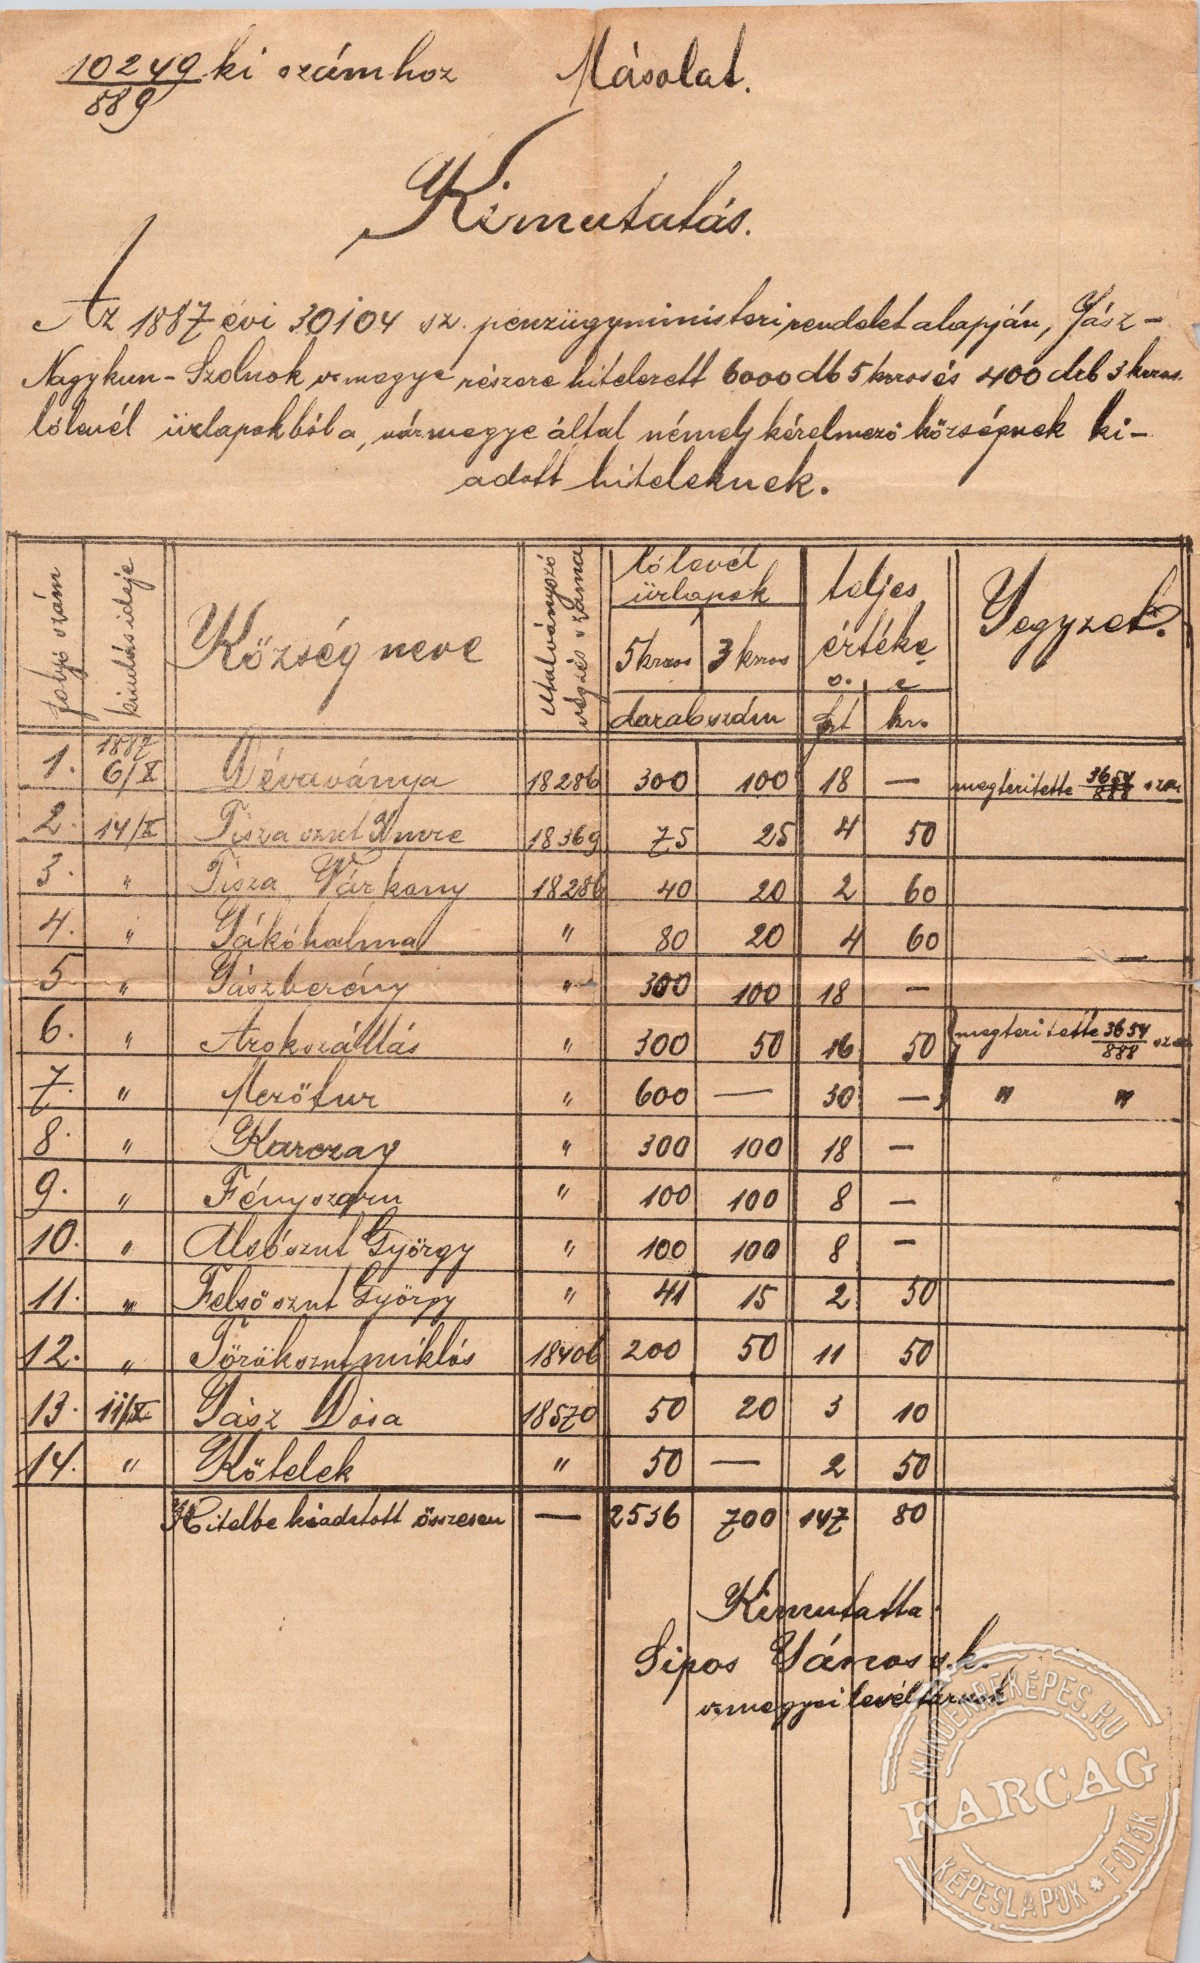 10249 ki számhoz Másolat.
889
Kimutatás.
Az 1887 évi 30104 sz. penzügyministeri rendelet alapján, Jász-
Nagykun-Szolnok vmegye részere hitelezett 6000 db 5 kros és 400 drb 3 kros
lólevél ürlapokból a, vármegye által némely kérelmező községnek ki-
adott hiteleknek.
folyó szám kiutás ideje Község neve Utalványozó végzés száma lólevél ürlapok teljes értéke Jegyzet.
5 kros 3 kros o. é
darabszám frt kr.
1. 1887 6/X Dévaványa 18286 300 100 18 — megteritette 3654/888 szám
2. 14/X Tisza sznt Imre 18369 75 25 4 50
3. " Tisza Várkony 18286 40 20 2 60
4. " Jákóhalma " 80 20 4 60 —
5 " Jászberény " 300 100 18 —
6. " Árokszállás " 300 50 16 50 megteritette 3654/888 szám
7. " Mezőtur " 600 — 30 — " "
8. " Karczag " 300 100 18 —
9. " Fényszaru " 100 100 8 —
10. " Alsósznt György " 100 100 8 —
11. " Felsősznt György " 41 15 2 50
12. " Törökszntmiklós 18406 200 50 11 50
13. 11/X Jász Dósa 18570 50 20 3 10
14. " Kőtelek " 50 — 2 50
Hitelbe kiadatott összesen — 2536 700 147 80
Kimutatta.
Sipos János s.k.
vmegyei levéltárnok
MINDENREKÉPES.HU
KARCAG
KÉPESLAPOK * FOTÓK